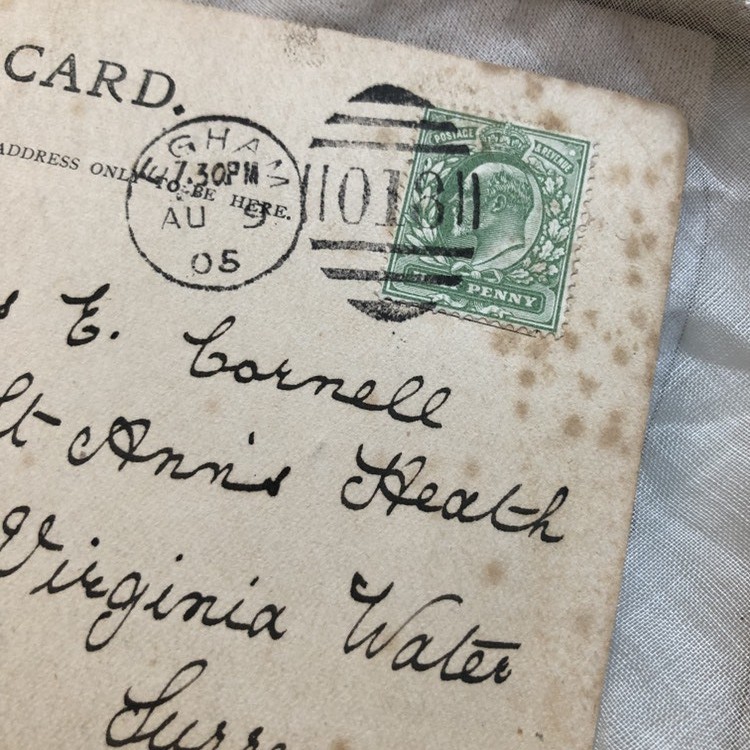 CARD.
ADDRESS ONLY TO BE HERE.
GHAM
7.30PM
AU 9
05
018
POSTAGE & REVENUE
PENNY
E. Cornell
St Ann's Heath
Virginia Water
Surre